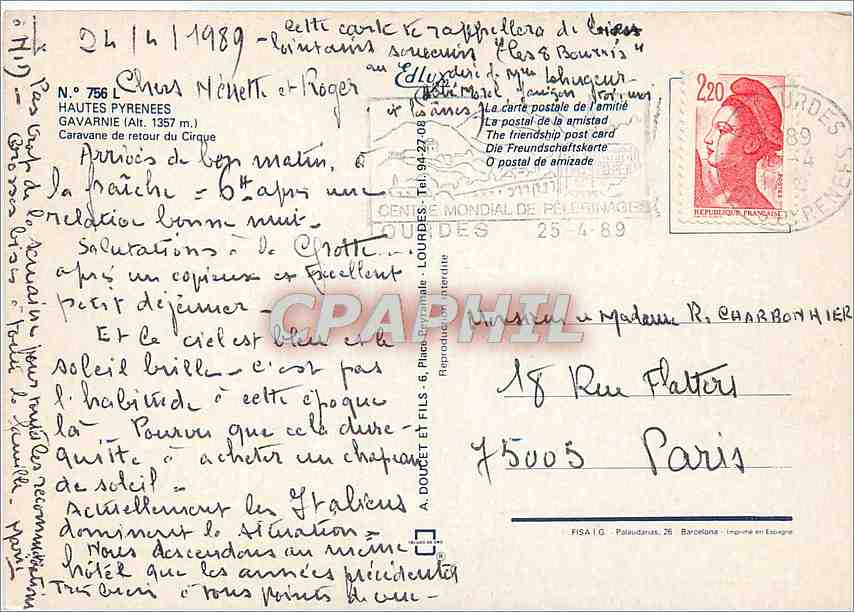 24/4/1989 - cette carte te rappellera de biens
lointains souvenirs "les 8 Bourris"
au
Chers Nénette et Roger
N.º 756 L
HAUTES PYRENEES
GAVARNIE (Alt. 1357 m.)
Caravane de retour du Cirque
Edlux
La carte postale de l'amitié
La postal de la amistad
The friendship post card
Die Freundschaftskarte
O postal de amizade
CENTRE MONDIAL DE PÈLERINAGES
LOURDES 25-4-89
2,20
REPUBLIQUE FRANÇAISE
POSTES
LOURDES
PYRENEES
Arrivés de bon matin, à
la fraîche = 6H après une
relation bonne nuit.
Salutations à la Grotte...
après un copieux et Excellent
petit déjeuner -
Et le ciel est bleu et le
soleil brille - c'est pas
l'habitude à cette époque
là - Pourvu que cela dure -
quitte à acheter un chapeau
de soleil =
Actuellement les Italiens
dominent la situation =
Nous descendons au même
hôtel que les années précédentes
Très bien à tous points de vue -
Pas trop de la semaine pour toutes les recommandations
Grosses bises à toute la famille - 
A. DOUCET ET FILS - 6, Place Peyramale - LOURDES - Tel. 94-27-08
Reproduction interdite
CPAPHIL
Monsieur et Madame R. CHARBONNIER
18 Rue Flatters
75005 Paris
FISA I.G. - Palaudarias, 26 Barcelona - Imprimé en Espagne